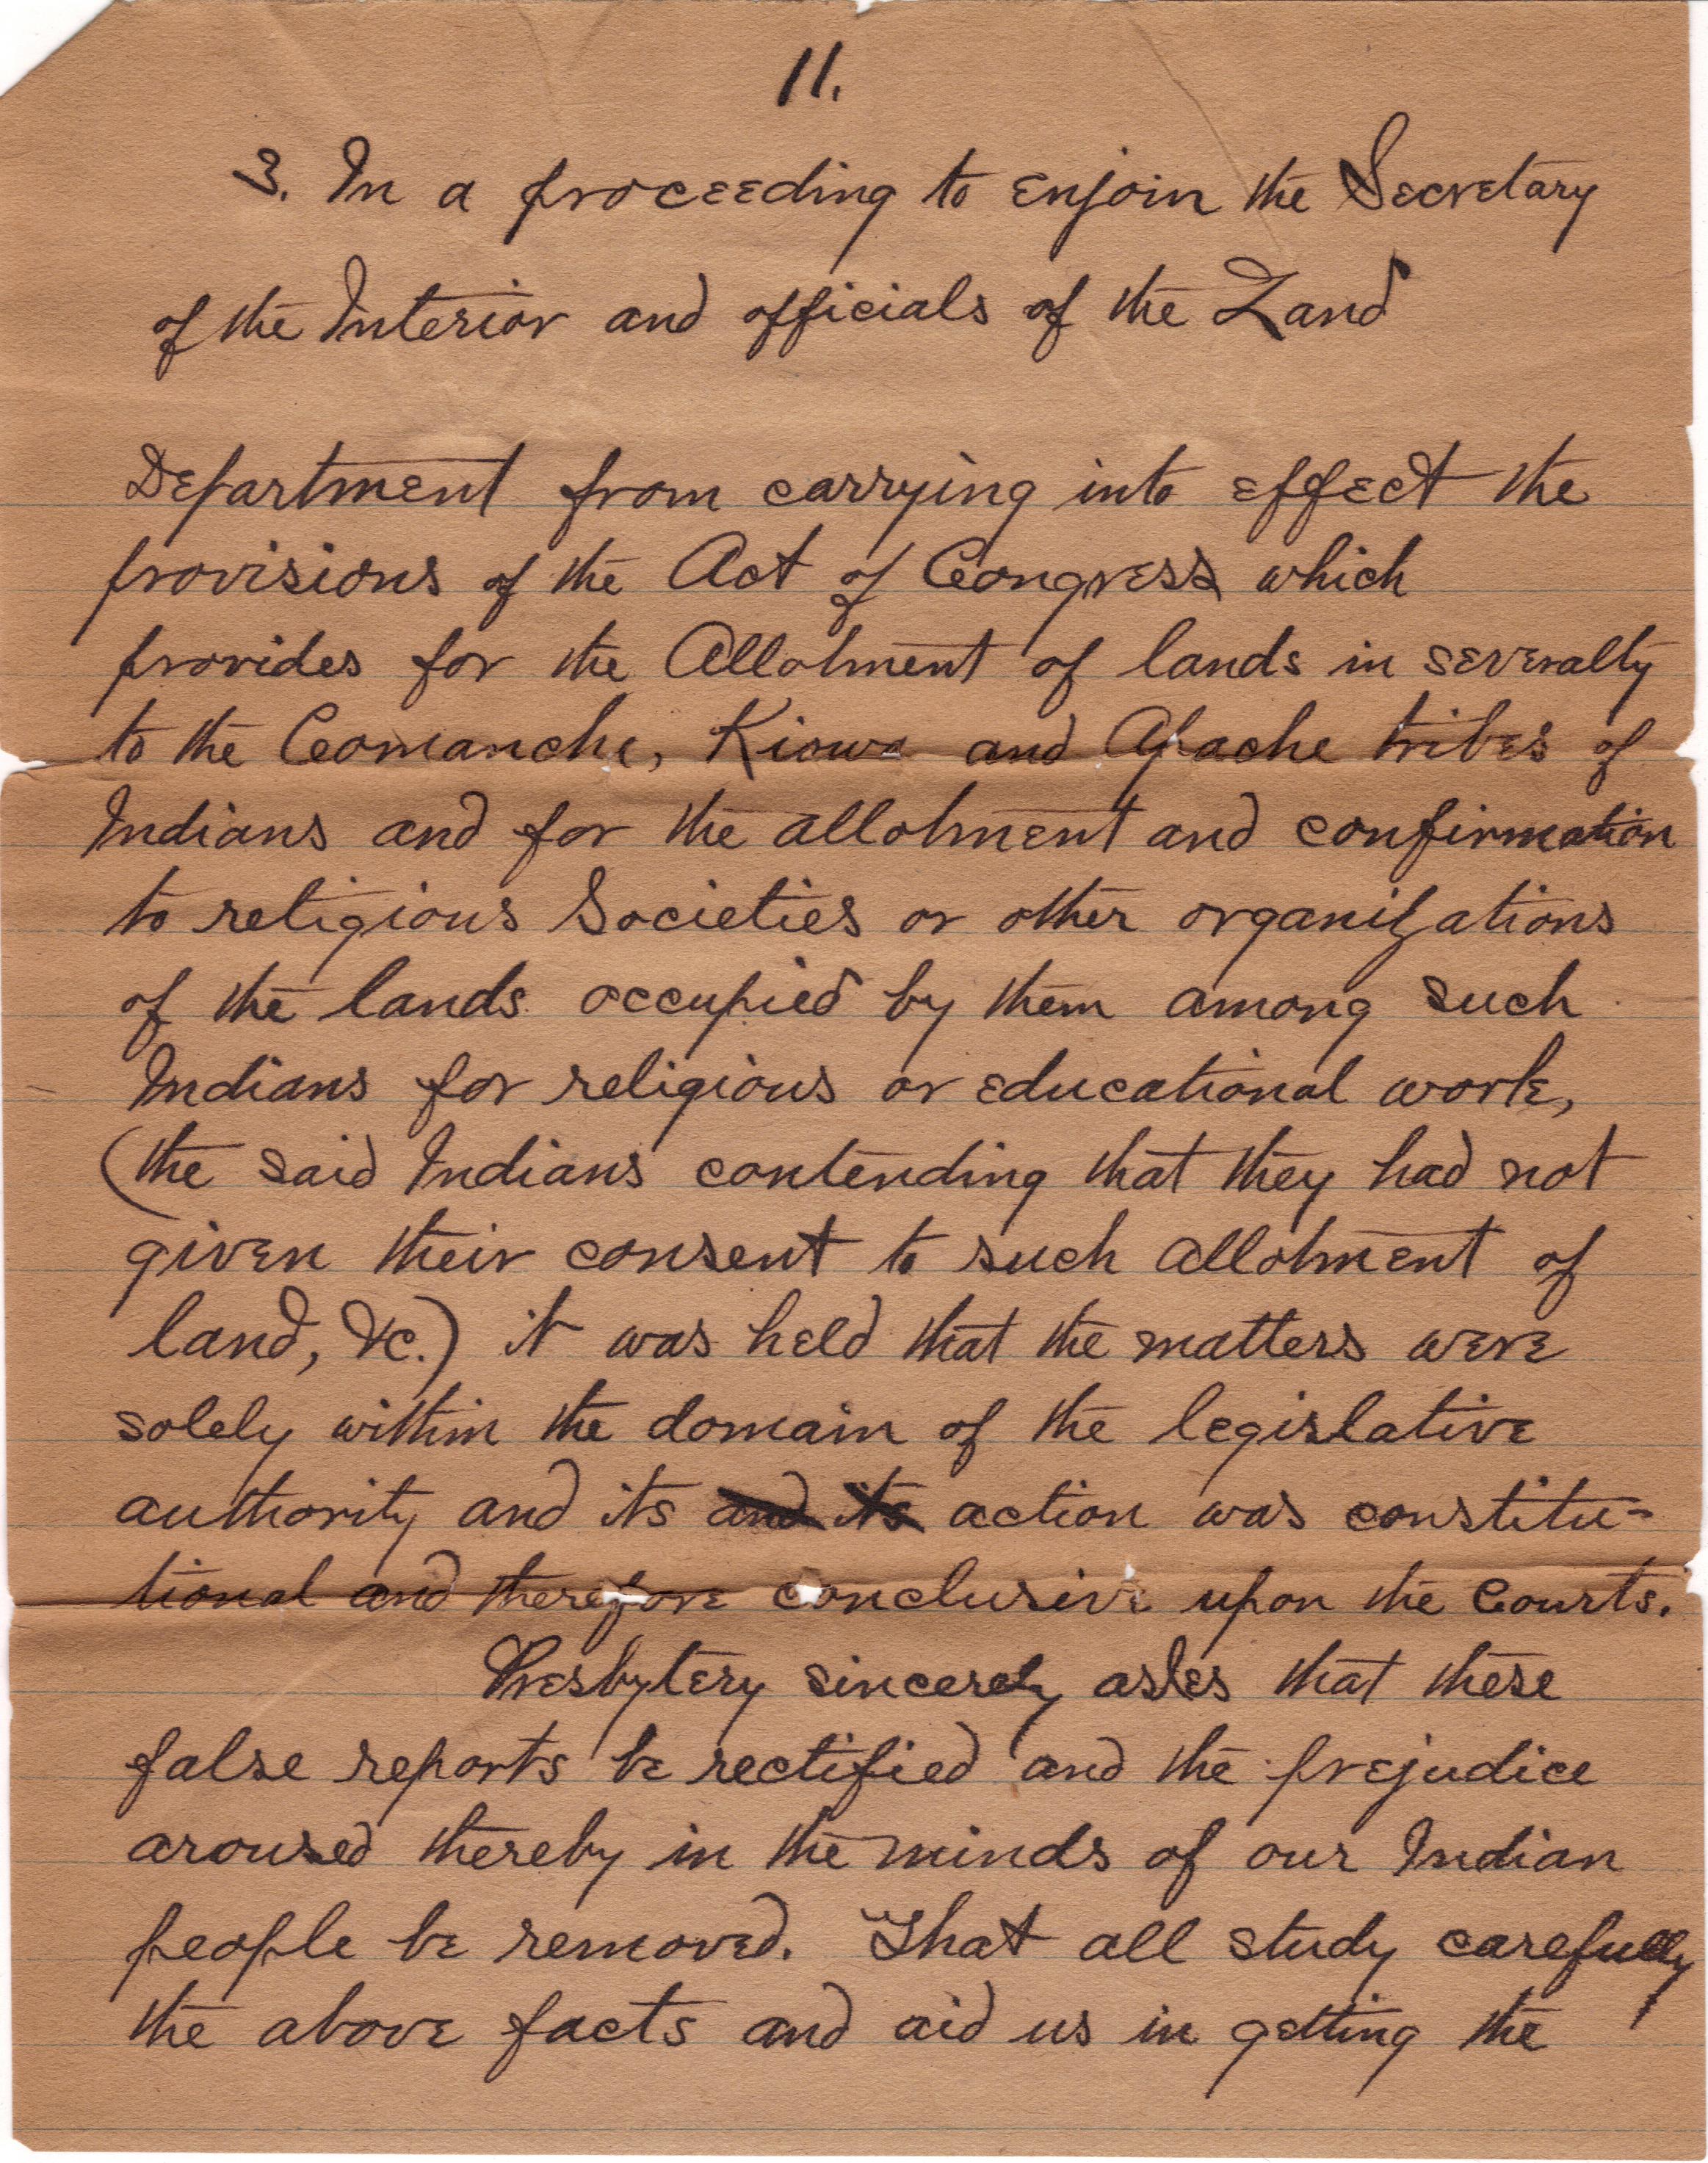 11.
3. In a proceeding to enjoin the Secretary
of the Interior and officials of the Land
Department from carrying into effect the
provisions of the Act of Congress which
provides for the Allotment of lands in severalty
to the Comanche, Kiowa and Apache tribes of
Indians and for the allotment and confirmation
to religious Societies or other organizations
of the lands occupied by them among such
Indians for religious or educational work,
(the said Indians contending that they had not
given their consent to such allotment of
land, &c.) it was held that the matters were
solely within the domain of the legislative
authority and its and its action was constitu-
tional and therefore conclusive upon the Courts.
Presbytery sincerely asks that these
false reports be rectified and the prejudice
aroused thereby in the minds of our Indian
people be removed. That all study carefully
the above facts and aid us in getting the